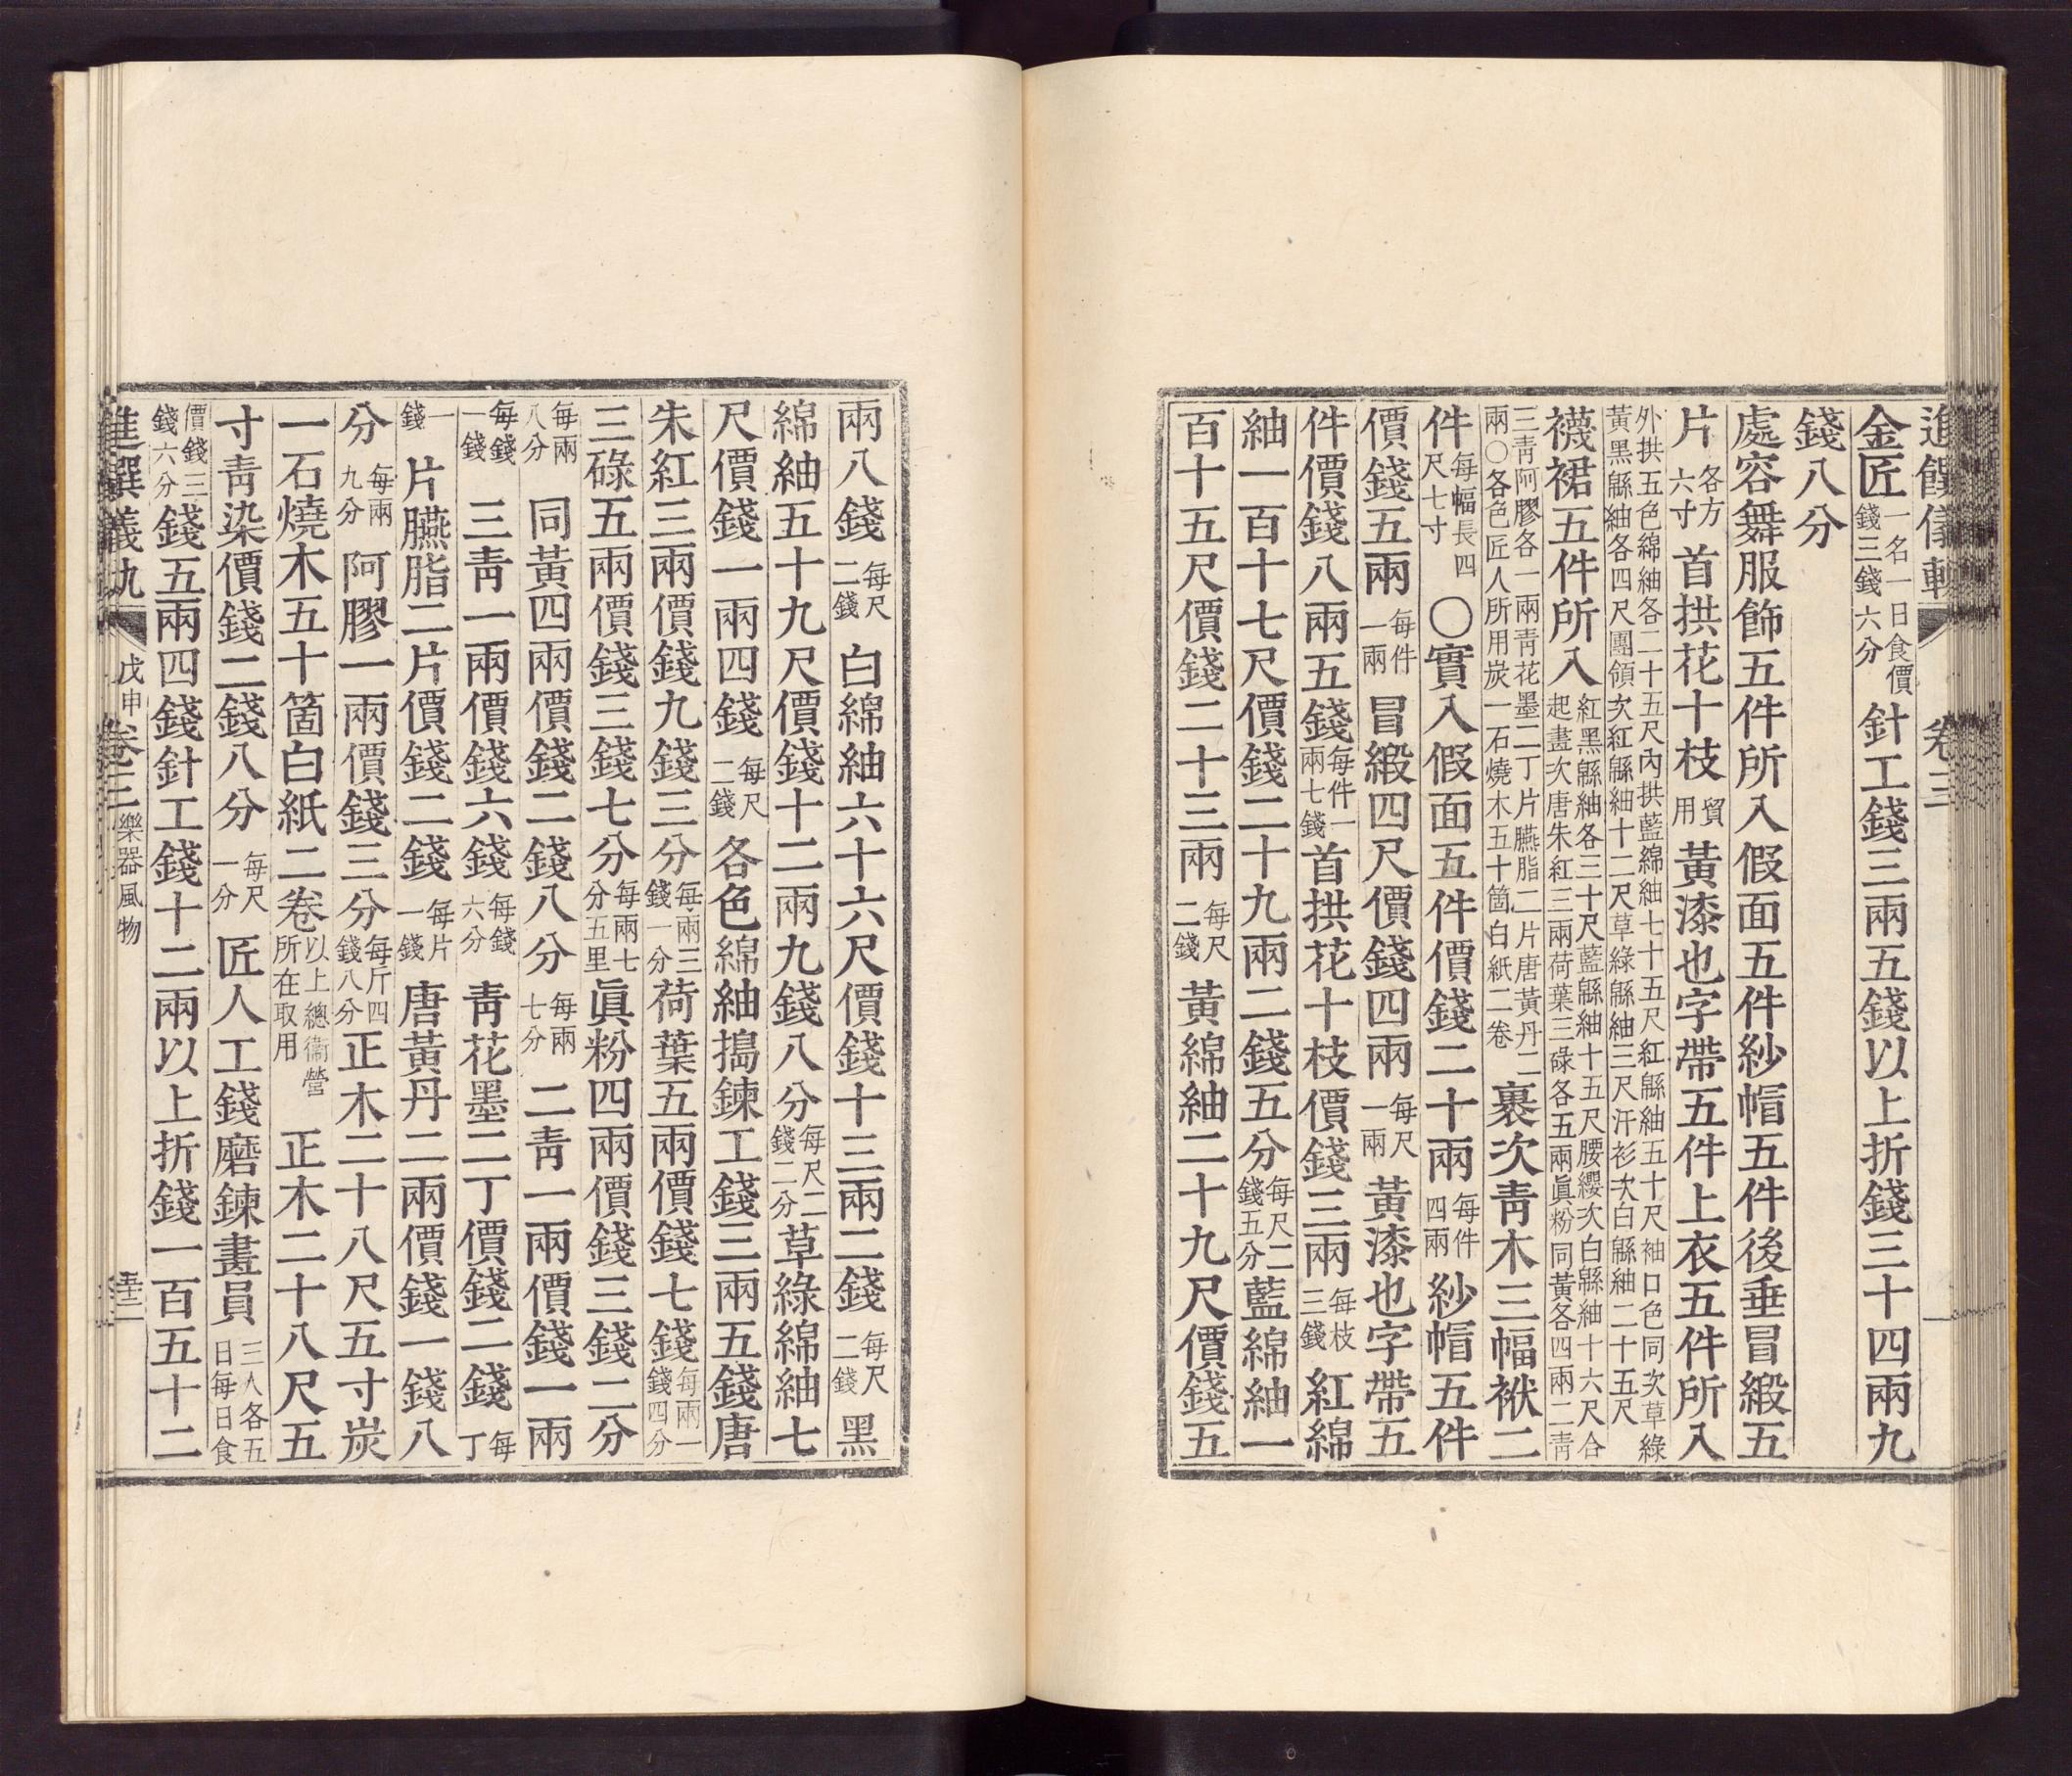 進饌儀軌 卷三
金匠一名一日食價錢三錢六分針工錢三兩五錢以上折錢三十四兩九
錢八分
處容舞服飾五件所入假面五件紗帽五件後垂冒緞五
片各方六寸首拱花十枝貿用黃漆也字帶五件上衣五件所入
外拱五色綿紬各二十五尺內拱藍綿紬七十五尺紅緜紬五十尺袖口色同次草綠
黃黑緜紬各四尺團領次紅緜紬十二尺草綠緜紬三尺汗衫次白緜紬二十五尺
襪裙五件所入紅黑緜紬各三十尺藍緜紬十五尺腰纓次白緜紬十六尺合
起畫次唐朱紅三兩荷葉三碌各五兩眞粉同黃各四兩二靑
三靑阿膠各一兩靑花墨二丁片臙脂二片唐黃丹二
兩〇各色匠人所用炭一石燒木五十箇白紙二卷裹次靑木三幅袱二
件每幅長四尺七寸〇實入假面五件價錢二十兩每件四兩紗帽五件
價錢五兩每件一兩冒緞四尺價錢四兩每尺一兩黃漆也字帶五
件價錢八兩五錢每件一兩七錢首拱花十枝價錢三兩每枝三錢紅綿
紬一百十七尺價錢二十九兩二錢五分每尺二錢五分藍綿紬一
百十五尺價錢二十三兩每尺二錢黃綿紬二十九尺價錢五
兩八錢每尺二錢白綿紬六十六尺價錢十三兩二錢每尺二錢黑
綿紬五十九尺價錢十二兩九錢八分每尺二錢二分草綠綿紬七
尺價錢一兩四錢每尺二錢各色綿紬搗鍊工錢三兩五錢唐
朱紅三兩價錢九錢三分每兩三錢一分荷葉五兩價錢七錢每兩一錢四分
三碌五兩價錢三錢七分每兩七分五里眞粉四兩價錢三錢二分
每兩八分同黃四兩價錢二錢八分每兩七分二靑一兩價錢一兩
每錢一錢三靑一兩價錢六錢每錢六分靑花墨二丁價錢二錢每丁
一錢片臙脂二片價錢二錢每片一錢唐黃丹二兩價錢一錢八
分每兩九分阿膠一兩價錢三分每斤四錢八分正木二十八尺五寸炭
一石燒木五十箇白紙二卷以上總衞營所在取用正木二十八尺五
寸靑染價錢二錢八分每尺一分匠人工錢磨鍊畫員三人各五日每日食
價錢三錢六分錢五兩四錢針工錢十二兩以上折錢一百五十二
進饌儀軌 戊申 卷三 樂器風物 五十二